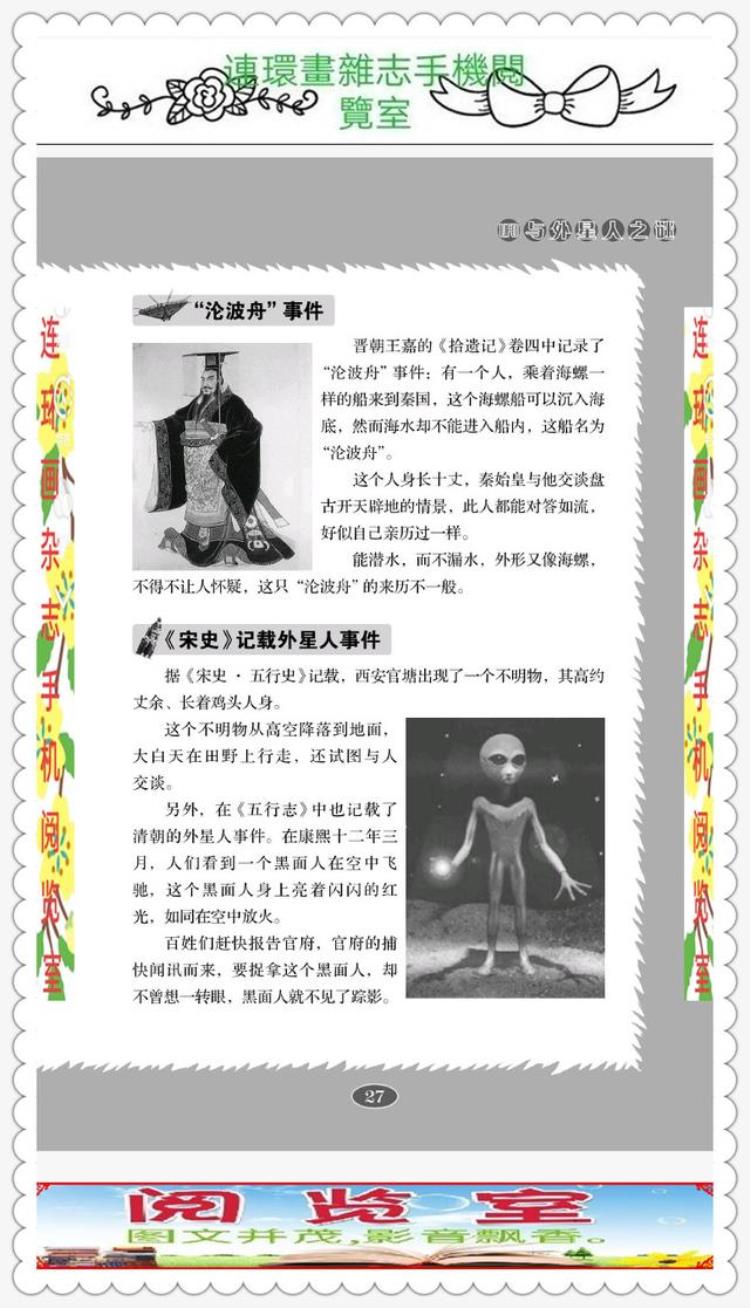 連環畫雜志手機閱
覽室
与外星人之谜
“沦波舟”事件
晋朝王嘉的《拾遗记》卷四中记录了
“沦波舟”事件：有一个人，乘着海螺一
样的船来到秦国，这个海螺船可以沉入海
底，然而海水却不能进入船内，这船名为
“沦波舟”。
这个人身长十丈，秦始皇与他交谈盘
古开天辟地的情景，此人都能对答如流，
好似自己亲历过一样。
能潜水，而不漏水，外形又像海螺，
不得不让人怀疑，这只“沦波舟”的来历不一般。
《宋史》记载外星人事件
据《宋史·五行史》记载，西安官塘出现了一个不明物，其高约
丈余、长着鸡头人身。
这个不明物从高空降落到地面，
大白天在田野上行走，还试图与人
交谈。
另外，在《五行志》中也记载了
清朝的外星人事件。在康熙十二年三
月，人们看到一个黑面人在空中飞
驰，这个黑面人身上亮着闪闪的红
光，如同在空中放火。
百姓们赶快报告官府，官府的捕
快闻讯而来，要捉拿这个黑面人，却
不曾想一转眼，黑面人就不见了踪影。
27
连环画杂志手机阅览室
连环画杂志手机阅览室
阅览室
图文并茂,影音飘香。